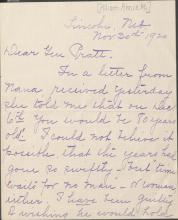 Lincoln, Neb
Nov 30th 1920
Dear Gen Pratt.
In a letter from
Nana received yesterday
she told me that on Dec
6th you would be 80 years
old. I could not believe it
possible, that the years had
gone so swiftly - but time
waits for no man - or woman
either. I have been guilty
wishing he would hold